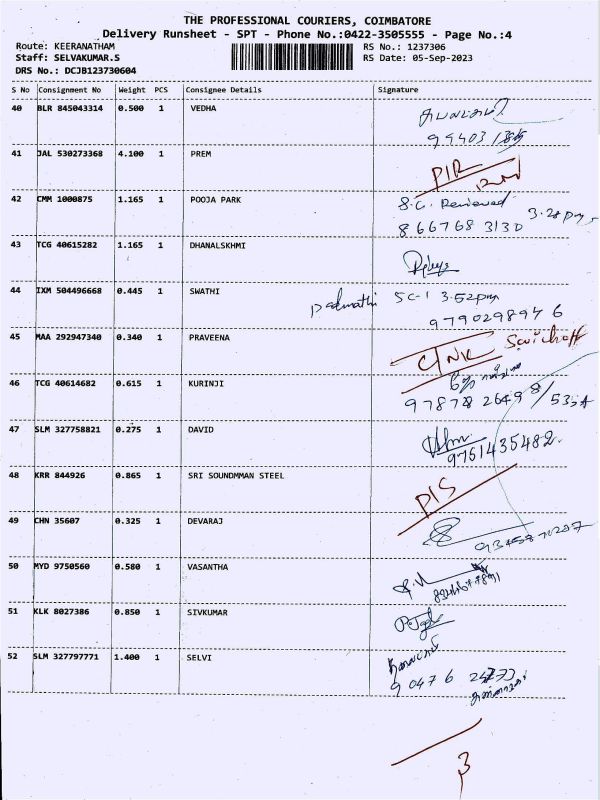 THE PROFESSIONAL COURIERS, COIMBATORE
Delivery Runsheet - SPT - Phone No.:0422-3505555 - Page No.:4
Route: KEERANATHAM RS No.: 1237306
Staff: SELVAKUMAR.S RS Date: 05-Sep-2023
DRS No.: DCJB123730604
S No Consignment No Weight PCS Consignee Details Signature
40 BLR 845043314 0.500 1 VEDHA
99403
41 JAL 530273368 4.100 1 PREM
42 CMM 1000875 1.165 1 POOJA PARK S.C. Received 3.28pm
866768 3130
43 TCG 40615282 1.165 1 DHANALSKHMI
44 IXM 504496668 0.445 1 SWATHI padmathi SC-1 3.52pm
9790298946
45 MAA 292947340 0.340 1 PRAVEENA CNR Swichoff
46 TCG 40614682 0.615 1 KURINJI
978728 26498/535A
47 SLM 327758821 0.275 1 DAVID
9751435482.
48 KRR 844926 0.865 1 SRI SOUNDMMAN STEEL
49 CHN 35607 0.325 1 DEVARAJ
50 MYD 9750560 0.580 1 VASANTHA
51 KLK 8027386 0.850 1 SIVKUMAR
52 SLM 327797771 1.400 1 SELVI
90476
3